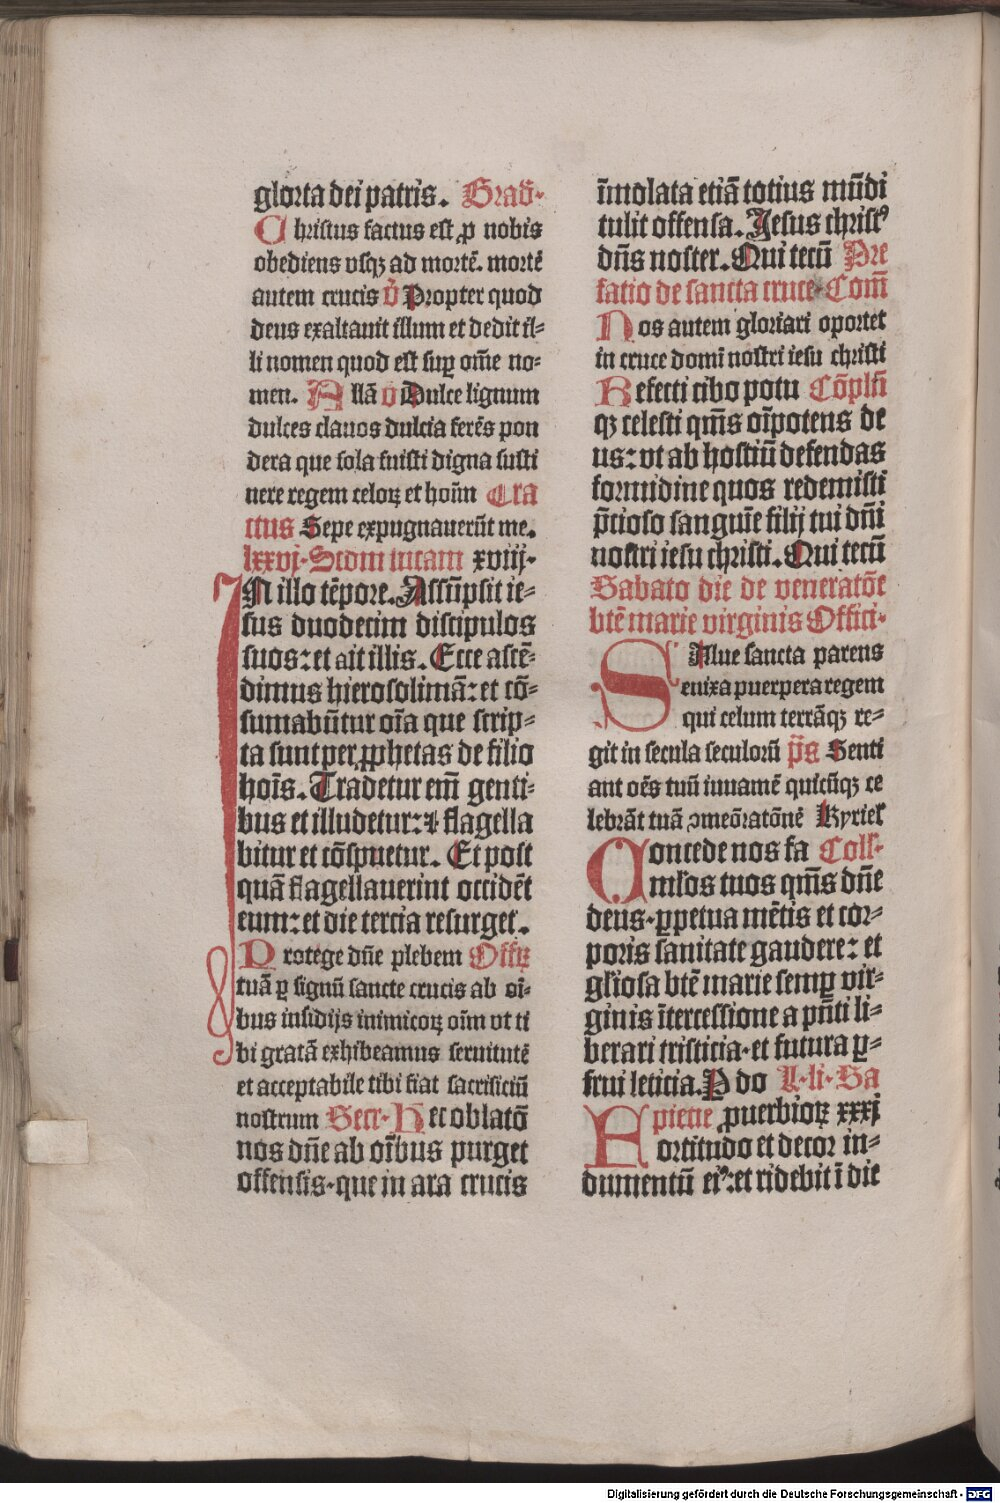 gloria dei patris. Grad̄.
Christus factus est ꝓ nobis
obediens vsqꝫ ad mortē. mortē
autem crucis v̄ Propter quod
deus exaltauit illum et dedit il-
li nomen quod est suꝑ om̄e no-
men. Allā v̄ Dulce lignum
dulces clauos dulcia ferēs pon
dera que sola fuisti digna susti
nere regem celoꝝ et hoīm Tra
ctus Sepe expugnauerūt me.
lxxvj. Scdm lucam xviij.
IN illo tēpore. Assūpsit ie-
sus duodecim discipulos
suos: et ait illis. Ecce ascē-
dimus hierosolimā: et cō-
sumabūtur oīa que scrip-
ta sunt per ꝓphetas de filio
hoīs. Tradetur em̄ genti-
bus et illudetur: ⁊ flagella
bitur et cōspuetur. Et post
quā flagellauerint occidēt
eum: et die tercia resurget.
Protege dn̄e plebem Offꝝ
tuā ꝑ signū sancte crucis ab oī-
bus insidijs inimicoꝝ oīm vt ti
bi gratā exhibeamus seruitutē
et acceptabile tibi fiat sacrificiū
nostrum Secr. Hec oblatō
nos dn̄e ab oībus purget
offensis. que in ara crucis
īmolata etiā totius mūdi
tulit offensa. Jesus christꝰ
dn̄s noster. Qui tecū Pre
fatio de sancta cruce. Com̄
Nos autem gloriari oportet
in cruce domī nostri iesu christi
Refecti cibo potu Cōpln̄
qꝫ celesti qm̄s oīpotens de
us: vt ab hostiū defendas
formidine quos redemisti
p̄cioso sanguīe filij tui dn̄i
nostri iesu christi. Qui tecū
Sabato die de veneratōe
btē marie virginis Offici.
SAlue sancta parens
enixa puerpera regem
qui celum terrāqꝫ re-
git in secula seculorū p̄s Senti
ant oēs tuū iuuamē quicūqꝫ ce
lebrāt tuā ꝯmeōratōnē Kyriel
Concede nos fa Coll.
mlos tuos qm̄s dn̄e
deus. ꝑpetua mētis et cor-
poris sanitate gaudere: et
gl̄iosa btē marie semꝑ vir-
ginis ītercessione a pn̄ti li-
berari tristicia. et futura ꝑ-
frui leticia. P do L. li. Sa
piētie ꝓuerbioꝝ xxxj
Fortitudo et decor in-
dumentū eiꝰ: et ridebit ī die
Digitalisierung gefördert durch die Deutsche Forschungsgemeinschaft - DFG